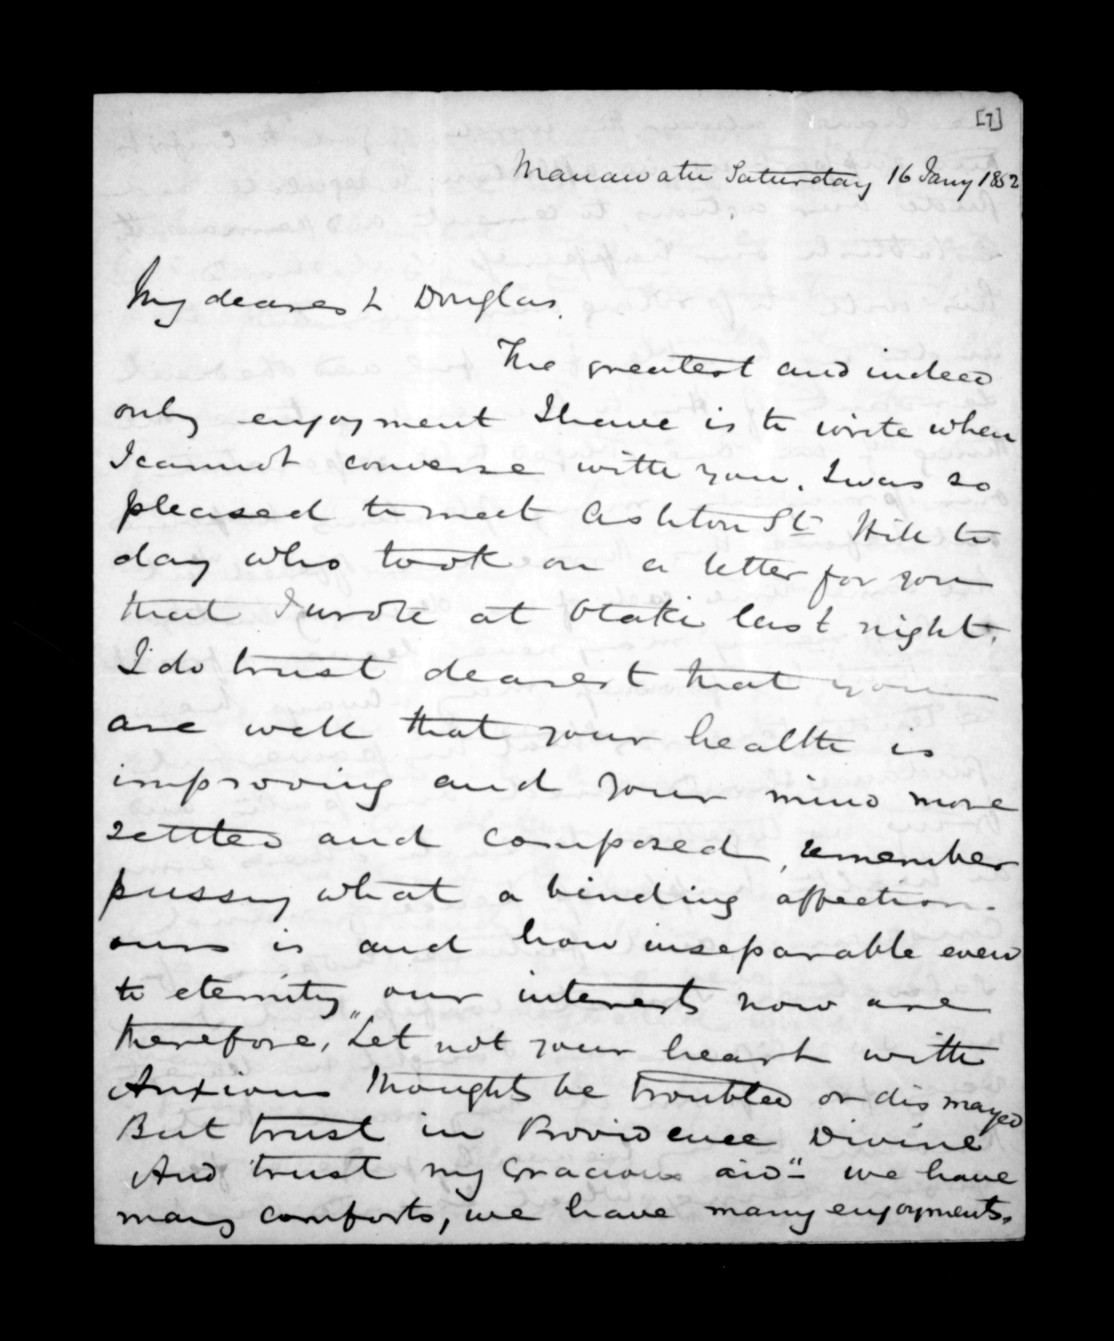 [7]
Manawatu Saturday 16 Jany 1852
My dearest Douglas.
The greatest and indeed
only enjoyment I have is to write when
I cannot converse with you. I was so
pleased to meet Ashton St Hill to
day who took on a letter for you
that I wrote at Otaki last night.
I do trust dearest that you
are well that your health is
improving and your mind more
settled and composed, remember
pussy what a binding affection
ours is and how inseparable even
to eternity our interests now are
therefore, "Let not your heart with
Anxious thoughts be troubled or dismayed
But trust in Providence Divine
And trust my Gracious aid" we have
many comforts, we have many enjoyments,